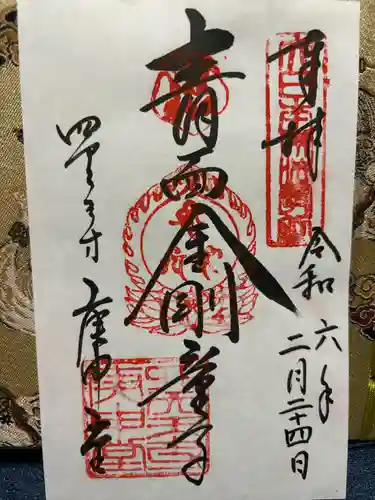 奉拝
令和六年
二月二十四日
青面金剛童子
四天王寺
庚申堂